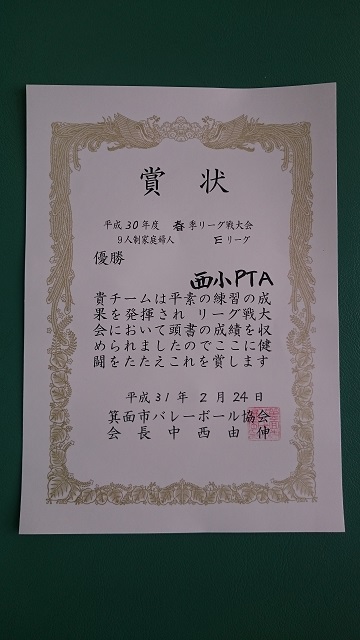 賞状
平成30年度 春季リーグ戦大会
9人制家庭婦人 Eリーグ
優勝
西小PTA
貴チームは平素の練習の成
果を発揮され リーグ戦大
会において頭書の成績を収
められましたのでここに健
闘をたたえこれを賞します
平成31年2月24日
箕面市バレーボール協会
会長中西由伸